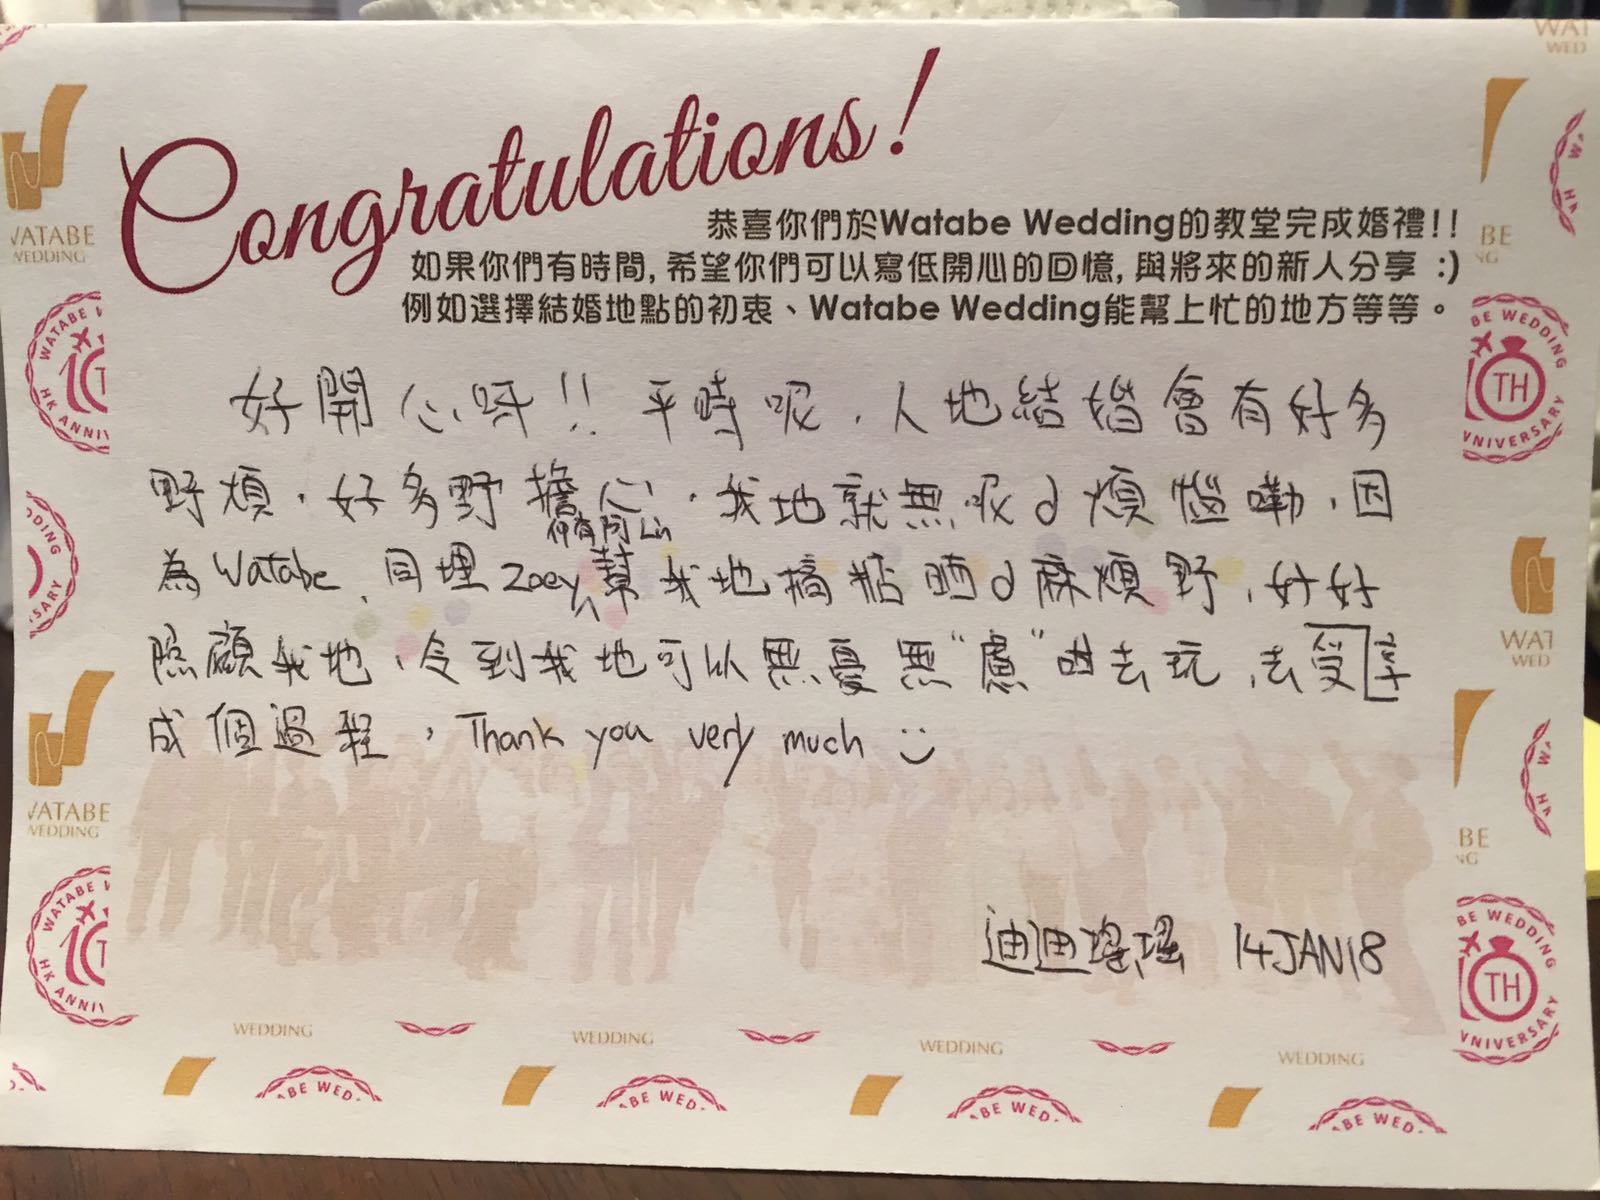 Congratulations!
恭喜你們於Watabe Wedding的教堂完成婚禮!!
如果你們有時間, 希望你們可以寫低開心的回憶, 與將來的新人分享 :)
例如選擇結婚地點的初衷、Watabe Wedding能幫上忙的地方等等。
好開心呀!! 平時呢，人地結婚會有好多
野煩，好多野擔心，我地就無呢d煩惱嘞，因
仲有阿Lin
為Watabe、同埋Zoey幫我地搞掂晒d麻煩野，好好
照顧我地，令到我地可以無憂無"慮"咁去玩，去享受
成個過程，Thank you very much :)
迪迪瑤瑤 14JAN18
WATABE WEDDING
HK ANNIVERSARY
10TH
WATABE
WEDDING
WEDDING
WEDDING
WEDDING
WEDDING